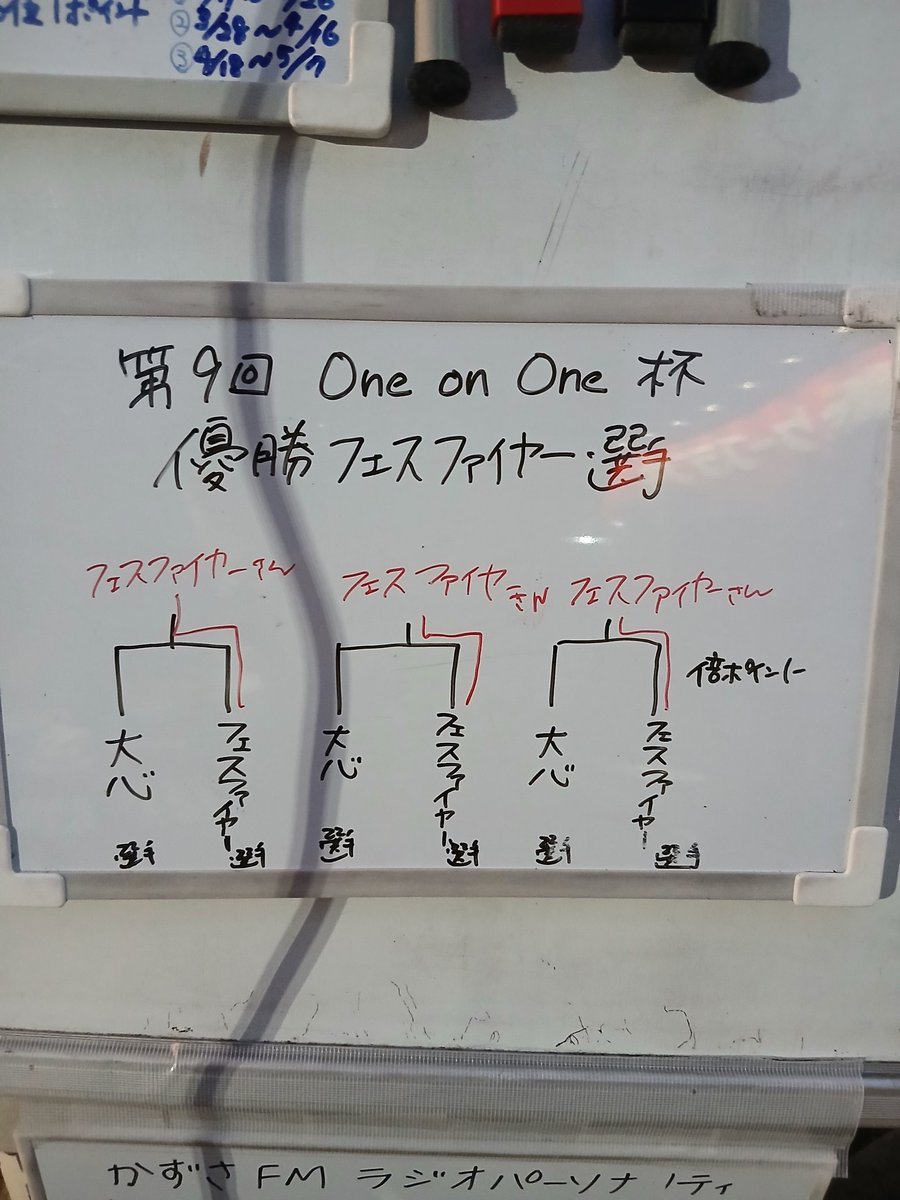 位1ポイント
②3/28〜4/16
③4/18〜5/7
第9回 One on One 杯
優勝 フェスファイヤー選手
フェスファイヤーさん
フェスファイヤさん
フェスファイヤーさん
倍ポイント
大心選手
フェスファイヤー選手
大心選手
フェスファイヤー選手
大心選手
フェスファイヤー選手
かずさFM ラジオパーソナリティ